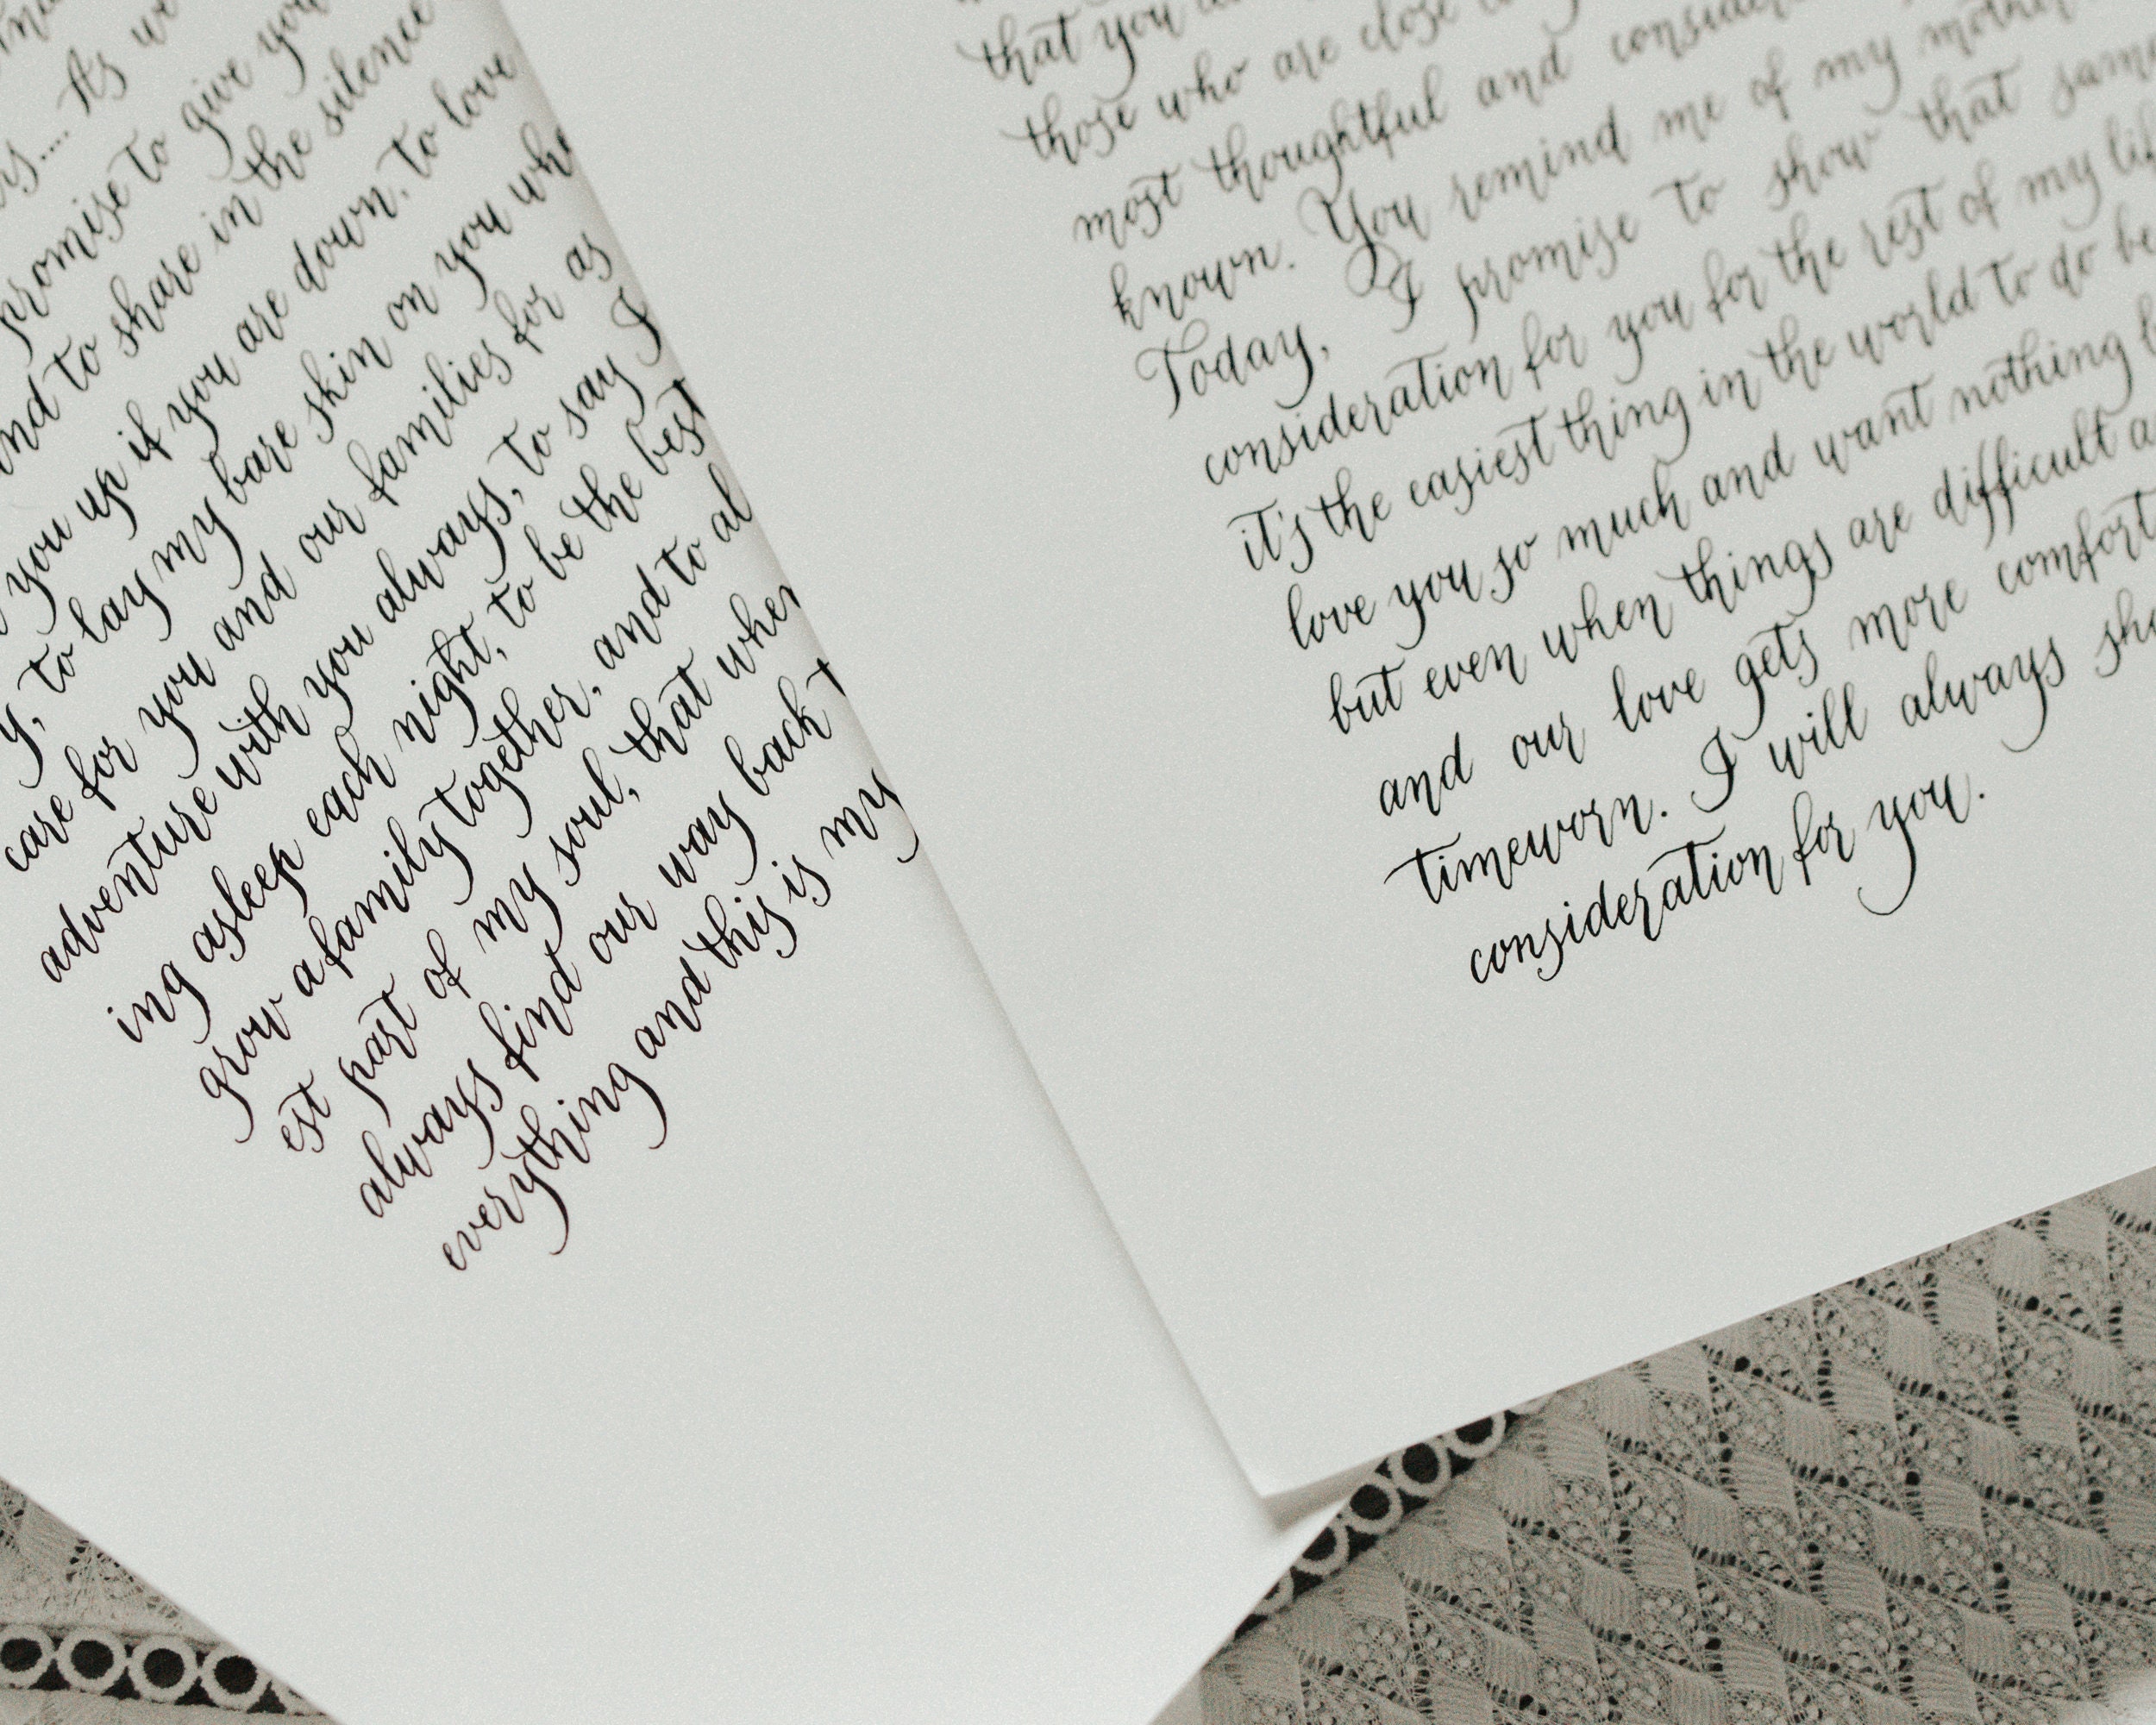 promise to give you
and to share in the silence
you up if you are down, to love
y, to lay my bare skin on you whe
care for you and our families for as
adventure with you always, to say I
ing asleep each night, to be the best
grow a family together, and to al
est part of my soul, that wher
always find our way back t
everything and this is my
that you
those who are close
most thoughtful and consider
known. You remind me of my mother
Today, I promise to show that same
consideration for you for the rest of my lif
it's the easiest thing in the world to do be
love you so much and want nothing b
but even when things are difficult a
and our love gets more comfort
timeworn. I will always sho
consideration for you.